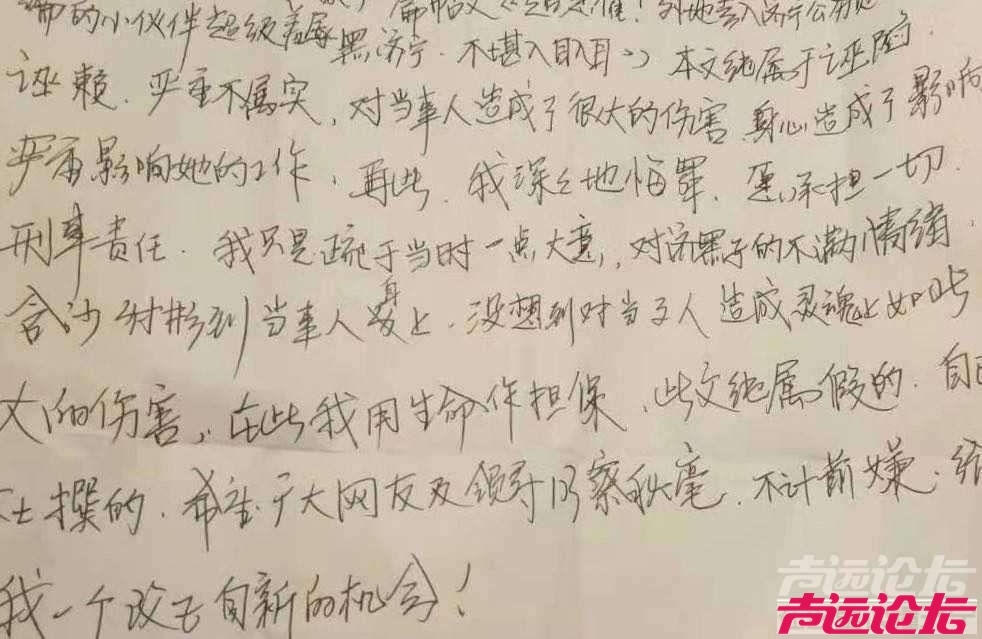 的小伙伴超级羞辱黑济宁.不堪入目入耳>>本文纯属于诬陷.
诬赖.严重不属实,对当事人造成了很大的伤害.身心造成了影响
严重影响她的工作,再此.我深深地悔罪.愿承担一切.
刑事责任.我只是疏于当时一点大意,对济黑子的不满情绪,
含沙射影到当事人身上.没想到对当事人造成灵魂上如此
大的伤害,在此我用生命作担保,此文纯属假的.自己
杜撰的.希望广大网友及领导明察秋毫.不计前嫌.给
我一个改过自新的机会!
声远论坛
声远论坛